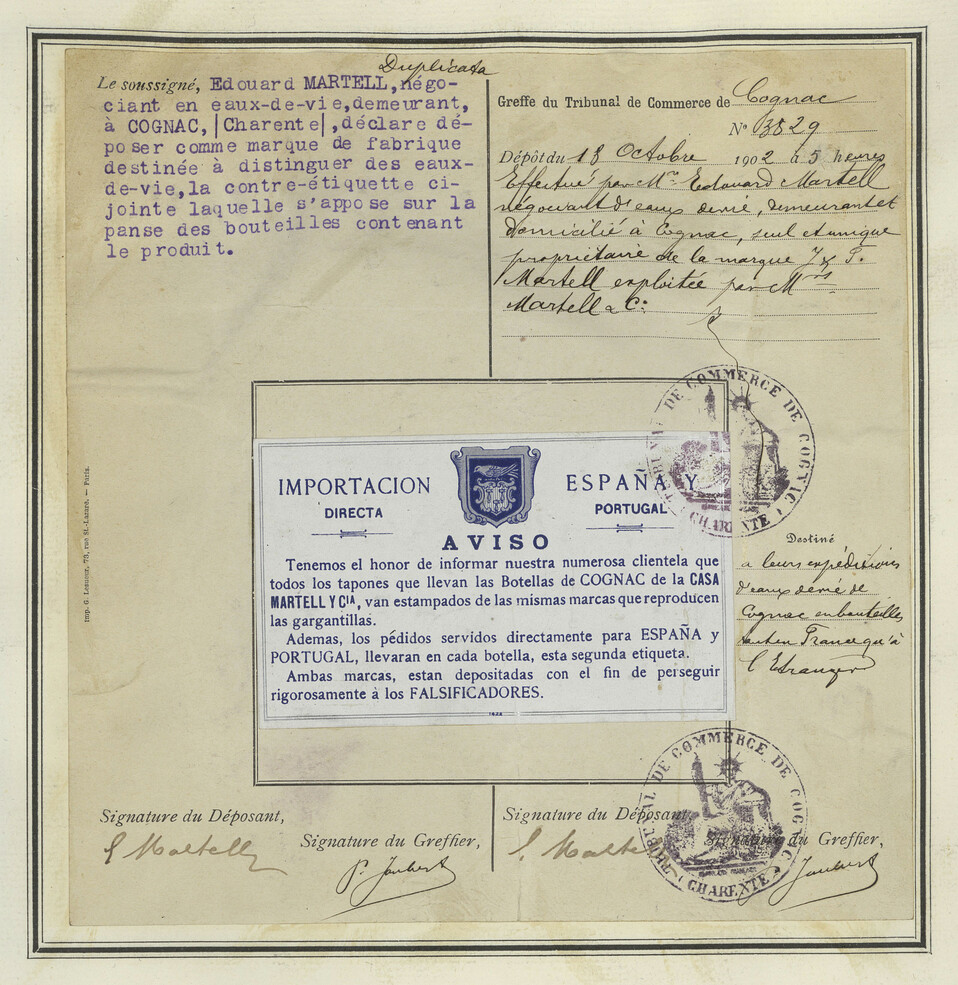 Duplicata
Le soussigné, Edouard MARTELL, négo-
ciant en eaux-de-vie, demeurant,
à COGNAC, |Charente|, déclare dé-
poser comme marque de fabrique
destinée à distinguer des eaux-
de-vie, la contre-étiquette ci-
jointe laquelle s'appose sur la
panse des bouteilles contenant
le produit.
Greffe du Tribunal de Commerce de Cognac
N° 3829
Dépôt du 18 Octobre 1902 à 5 heures
Effectué par Mr. Edouard Martell
négociant d'eaux de vie, demeurant et
domicilié à Cognac, seul et unique
propriétaire de la marque J & F.
Martell exploitée par Mrs
Martell & Cie
TRIBUNAL DE COMMERCE DE COGNAC
CHARENTE
IMPORTACION
DIRECTA
ESPAÑA Y
PORTUGAL
AVISO
Tenemos el honor de informar nuestra numerosa clientela que
todos los tapones que llevan las Botellas de COGNAC de la CASA
MARTELL Y CIA, van estampados de las mismas marcas que reproducen
las gargantillas.
Ademas, los pédidos servidos directamente para ESPAÑA y
PORTUGAL, llevaran en cada botella, esta segunda etiqueta.
Ambas marcas, estan depositadas con el fin de perseguir
rigorosamente à los FALSIFICADORES.
Destiné
a leurs expéditions
d'eaux de vie de
Cognac en bouteilles
tant en France qu'à
l'Etranger
Imp. G. Lesueur, 78, rue St-Lazare. — Paris.
TRIBUNAL DE COMMERCE DE COGNAC
CHARENTE
Signature du Déposant,
E Martell
Signature du Greffier,
P. Joubert
Signature du Déposant,
E. Martell
Signature du Greffier,
Joubert